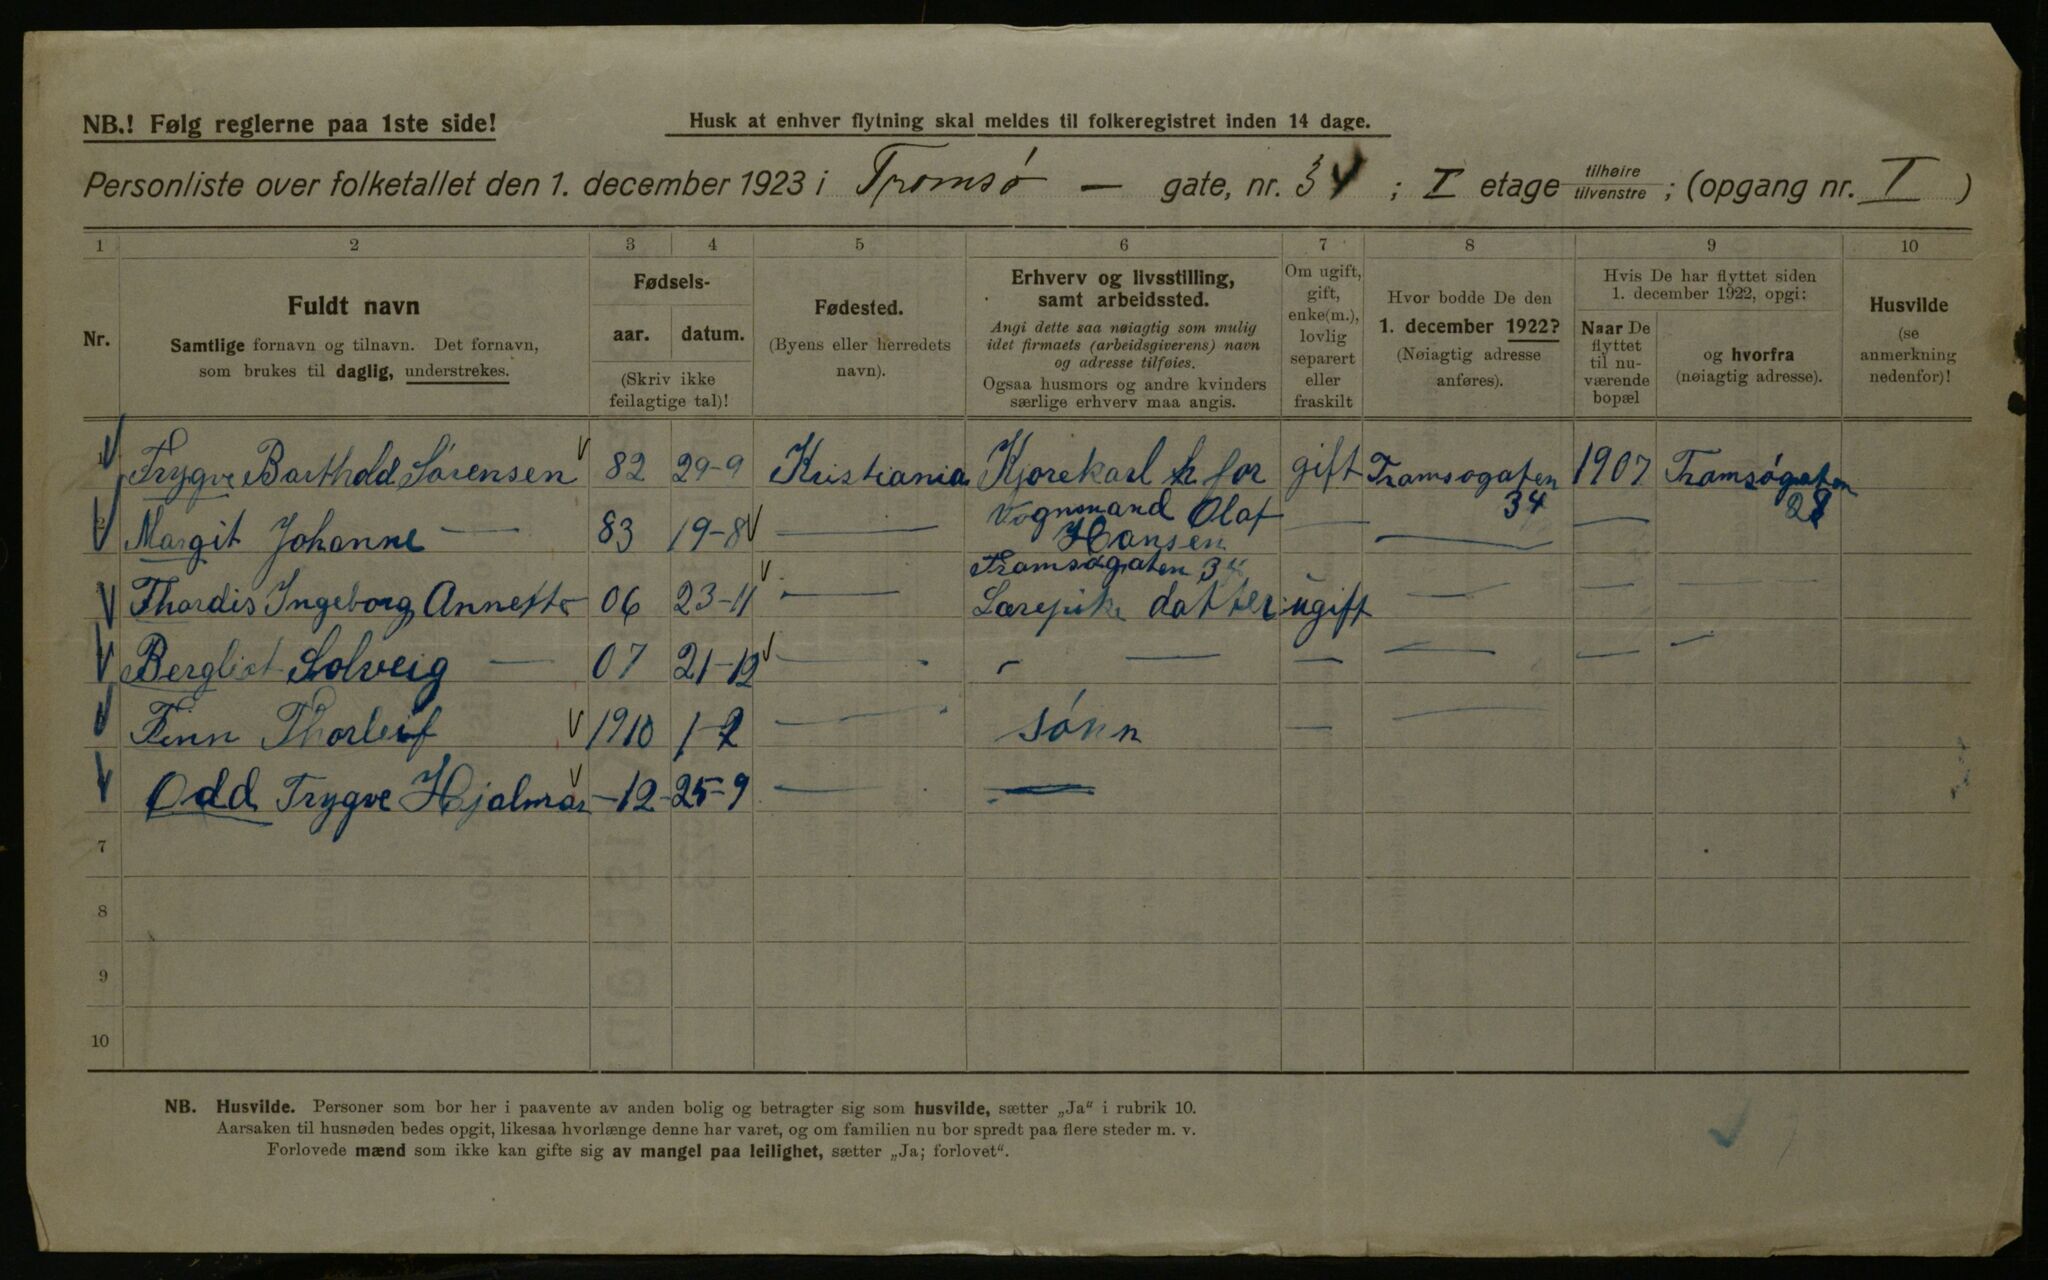 NB.! Følg reglerne paa 1ste side!
Husk at enhver flytning skal meldes til folkeregistret inden 14 dage.
Personliste over folketallet den 1. december 1923 i Tromsø — gate, nr. 34 ; I etage tilhøire tilvenstre ; (opgang nr. I )
1 2 3 4 5 6 7 8 9 10
Nr.
Fuldt navn
Samtlige fornavn og tilnavn. Det fornavn,
som brukes til daglig, understrekes.
Fødsels-
aar. datum.
(Skriv ikke
feilagtige tal)!
Fødested.
(Byens eller herredets
navn).
Erhverv og livsstilling,
samt arbeidssted.
Angi dette saa nøiagtig som mulig
idet firmaets (arbeidsgiverens) navn
og adresse tilføies.
Ogsaa husmors og andre kvinders
særlige erhverv maa angis.
Om ugift,
gift,
enke(m.),
lovlig
separert
eller
fraskilt
Hvor bodde De den
1. december 1922?
(Nøiagtig adresse
anføres).
Hvis De har flyttet siden
1. december 1922, opgi:
Naar De
flyttet
til nu-
værende
bopæl
og hvorfra
(nøiagtig adresse).
Husvilde
(se
anmerkning
nedenfor)!
Trygve Barthold Sørensen 82 29-9 Kristiania Kjørekarl for gift Tromsogaten 1907 Tromsøgaten
Vognmand Olaf 34 28
Margit Johanne — 83 19-8 — Hansen — — —
Tromsøgaten 34
Thordis Ingeborg Annette 06 23-11 — Lærepike datter ugift — — —
Bergliot Solveig — 07 21-12 — — — — — —
Finn Thorleif 1910 1-2 — sønn — —
Odd Trygve Hjalmar -12- 25-9 — —
7
8
9
10
NB. Husvilde. Personer som bor her i paavente av anden bolig og betragter sig som husvilde, sætter „Ja" i rubrik 10.
Aarsaken til husnøden bedes opgit, likesaa hvorlænge denne har varet, og om familien nu bor spredt paa flere steder m. v.
Forlovede mænd som ikke kan gifte sig av mangel paa leilighet, sætter „Ja; forlovet".